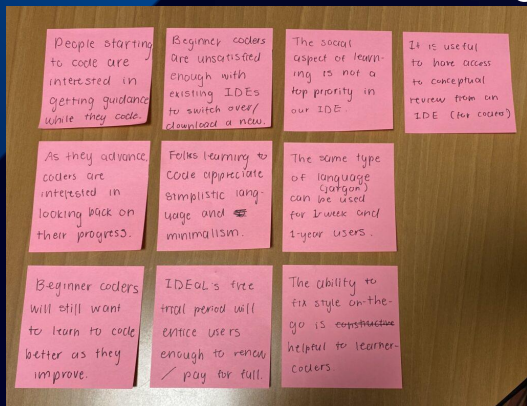 People starting
to code are
interested in
getting guidance
while they code.
Beginner coders
are unsatisfied
enough with
existing IDEs
to switch over/
download a new.
The social
aspect of learn-
ing is not a
top priority in
our IDE.
It is useful
to have access
to conceptual
review from an
IDE (for coders)
As they advance,
coders are
interested in
looking back on
their progress.
Folks learning to
code appreciate
simplistic lang-
uage and
minimalism.
The same type
of language
(jargon)
can be used
for 1-week and
1-year users.
Beginner coders
will still want
to learn to code
better as they
improve.
IDEaL's free
trial period will
entice users
enough to renew
/ pay for full.
The ability to
fix style on-the-
go is constructive
helpful to learner-
coders.